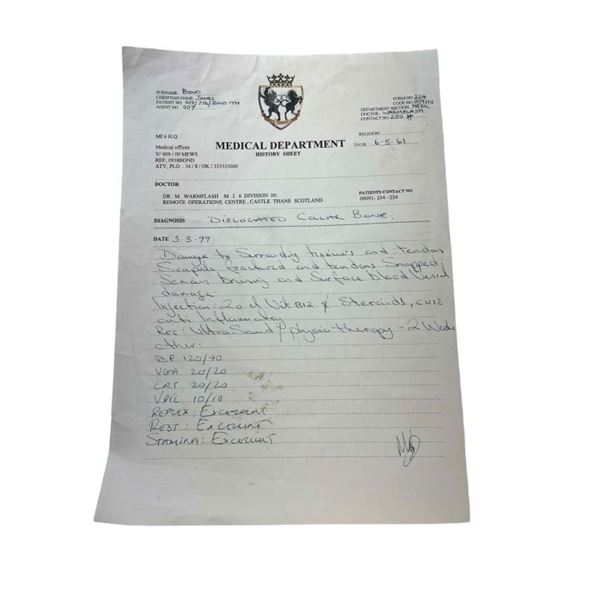 SURNAME BOND
CHRISTIAN NAME JAMES
PATIENT NO
AGENT NO 007
FORM NO 224
CODE NO 009/10
DEPARTMENT SECTION
DOCTOR WARMFLASH
CONTACT NO 200
MI 6 H.Q.
Medical offices
V/ 009 / 09 MEWS
REF; 0938BOND
ATV, PLO. : 34 / 8 / OK / 353535000
MEDICAL DEPARTMENT
HISTORY SHEET
RELIGION
D.O.B 6-5-61
DOCTOR
DR. M. WARMFLASH M.I. 6 DIVISION 00.
REMOTE OPERATIONS CENTRE, CASTLE THANE SCOTLAND
PATIENTS CONTACT NO
09091- 234 - 234
DIAGNOSIS DISLOCATED COLLAR BONE.
DATE 3-5-99
Damage to and tendon
Scapula fractured and tendons Snapped,
Serious and Surface blood Vessel
damage
Injection: 20 Vit B12 & Steroids,
anti Inflammatory
Rec: Ultra Sound / physio-therapy - 2 Weeks
other:
B.P 120/90
VGA 20/20
CRT 20/20
10/10
REFLEX: EXCELLENT
REST: EXCELLENT
STAMINA: EXCELLENT